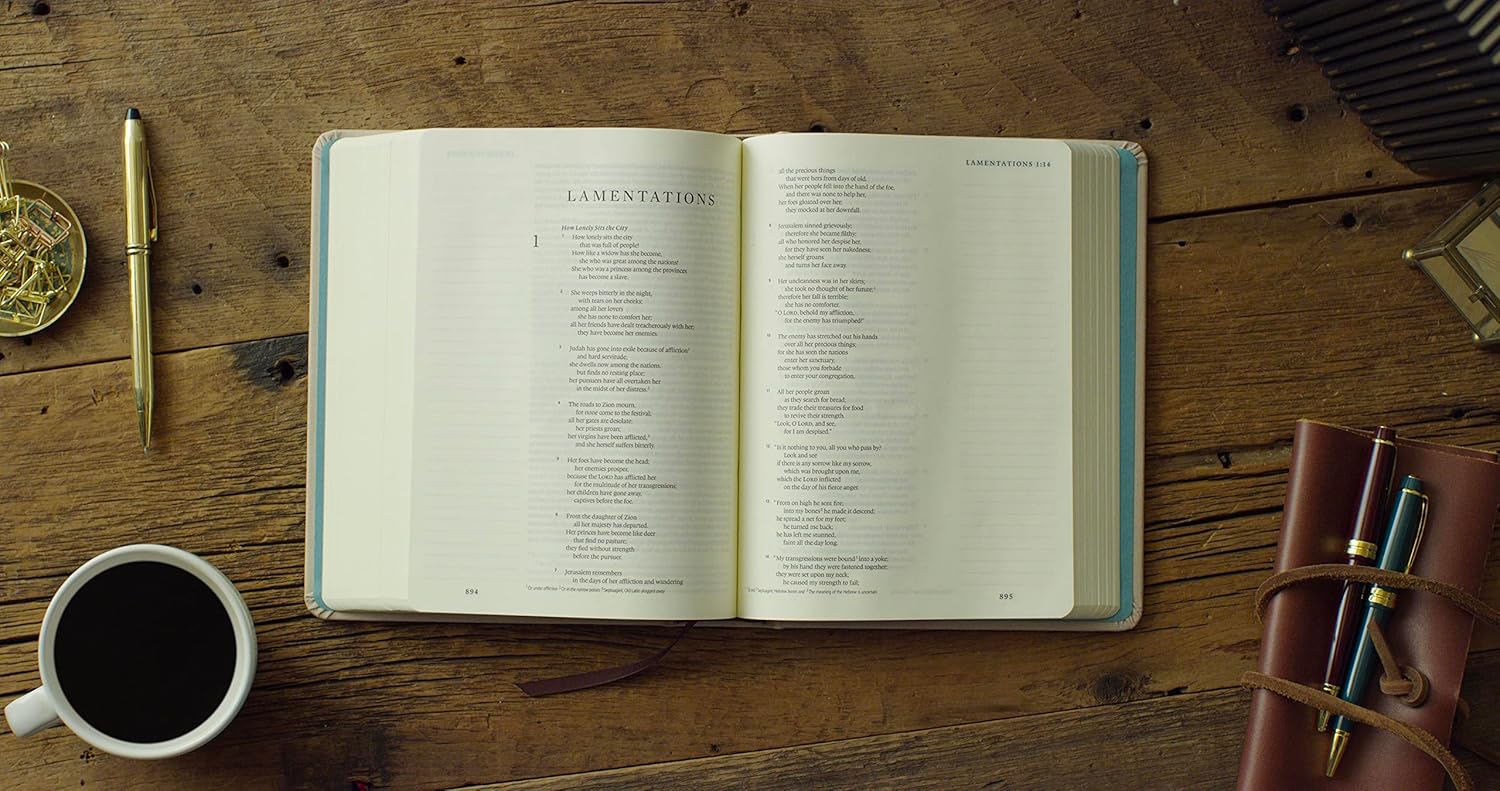 LAMENTATIONS
How Lonely Sits the City
1
1 How lonely sits the city
that was full of people!
How like a widow has she become,
she who was great among the nations!
She who was a princess among the provinces
has become a slave.
2 She weeps bitterly in the night,
with tears on her cheeks;
among all her lovers
she has none to comfort her;
all her friends have dealt treacherously with her;
they have become her enemies.
3 Judah has gone into exile because of affliction1
and hard servitude;
she dwells now among the nations,
but finds no resting place;
her pursuers have all overtaken her
in the midst of her distress.2
4 The roads to Zion mourn,
for none come to the festival;
all her gates are desolate;
her priests groan;
her virgins have been afflicted,3
and she herself suffers bitterly.
5 Her foes have become the head;
her enemies prosper,
because the LORD has afflicted her
for the multitude of her transgressions;
her children have gone away,
captives before the foe.
6 From the daughter of Zion
all her majesty has departed.
Her princes have become like deer
that find no pasture;
they fled without strength
before the pursuer.
7 Jerusalem remembers
in the days of her affliction and wandering
1 Or under affliction 2 Or in the narrow passes 3 Septuagint, Old Latin dragged away
894
LAMENTATIONS 1:14
all the precious things
that were hers from days of old.
When her people fell into the hand of the foe,
and there was none to help her,
her foes gloated over her;
they mocked at her downfall.
8 Jerusalem sinned grievously;
therefore she became filthy;
all who honored her despise her,
for they have seen her nakedness;
she herself groans
and turns her face away.
9 Her uncleanness was in her skirts;
she took no thought of her future;1
therefore her fall is terrible;
she has no comforter.
"O LORD, behold my affliction,
for the enemy has triumphed!"
10 The enemy has stretched out his hands
over all her precious things;
for she has seen the nations
enter her sanctuary,
those whom you forbade
to enter your congregation.
11 All her people groan
as they search for bread;
they trade their treasures for food
to revive their strength.
"Look, O LORD, and see,
for I am despised."
12 "Is it nothing to you, all you who pass by?
Look and see
if there is any sorrow like my sorrow,
which was brought upon me,
which the LORD inflicted
on the day of his fierce anger.
13 "From on high he sent fire;
into my bones2 he made it descend;
he spread a net for my feet;
he turned me back;
he has left me stunned,
faint all the day long.
14 "My transgressions were bound3 into a yoke;
by his hand they were fastened together;
they were set upon my neck;
he caused my strength to fail;
Septuagint; Hebrew bones and 3 The meaning of the Hebrew is uncertain
895